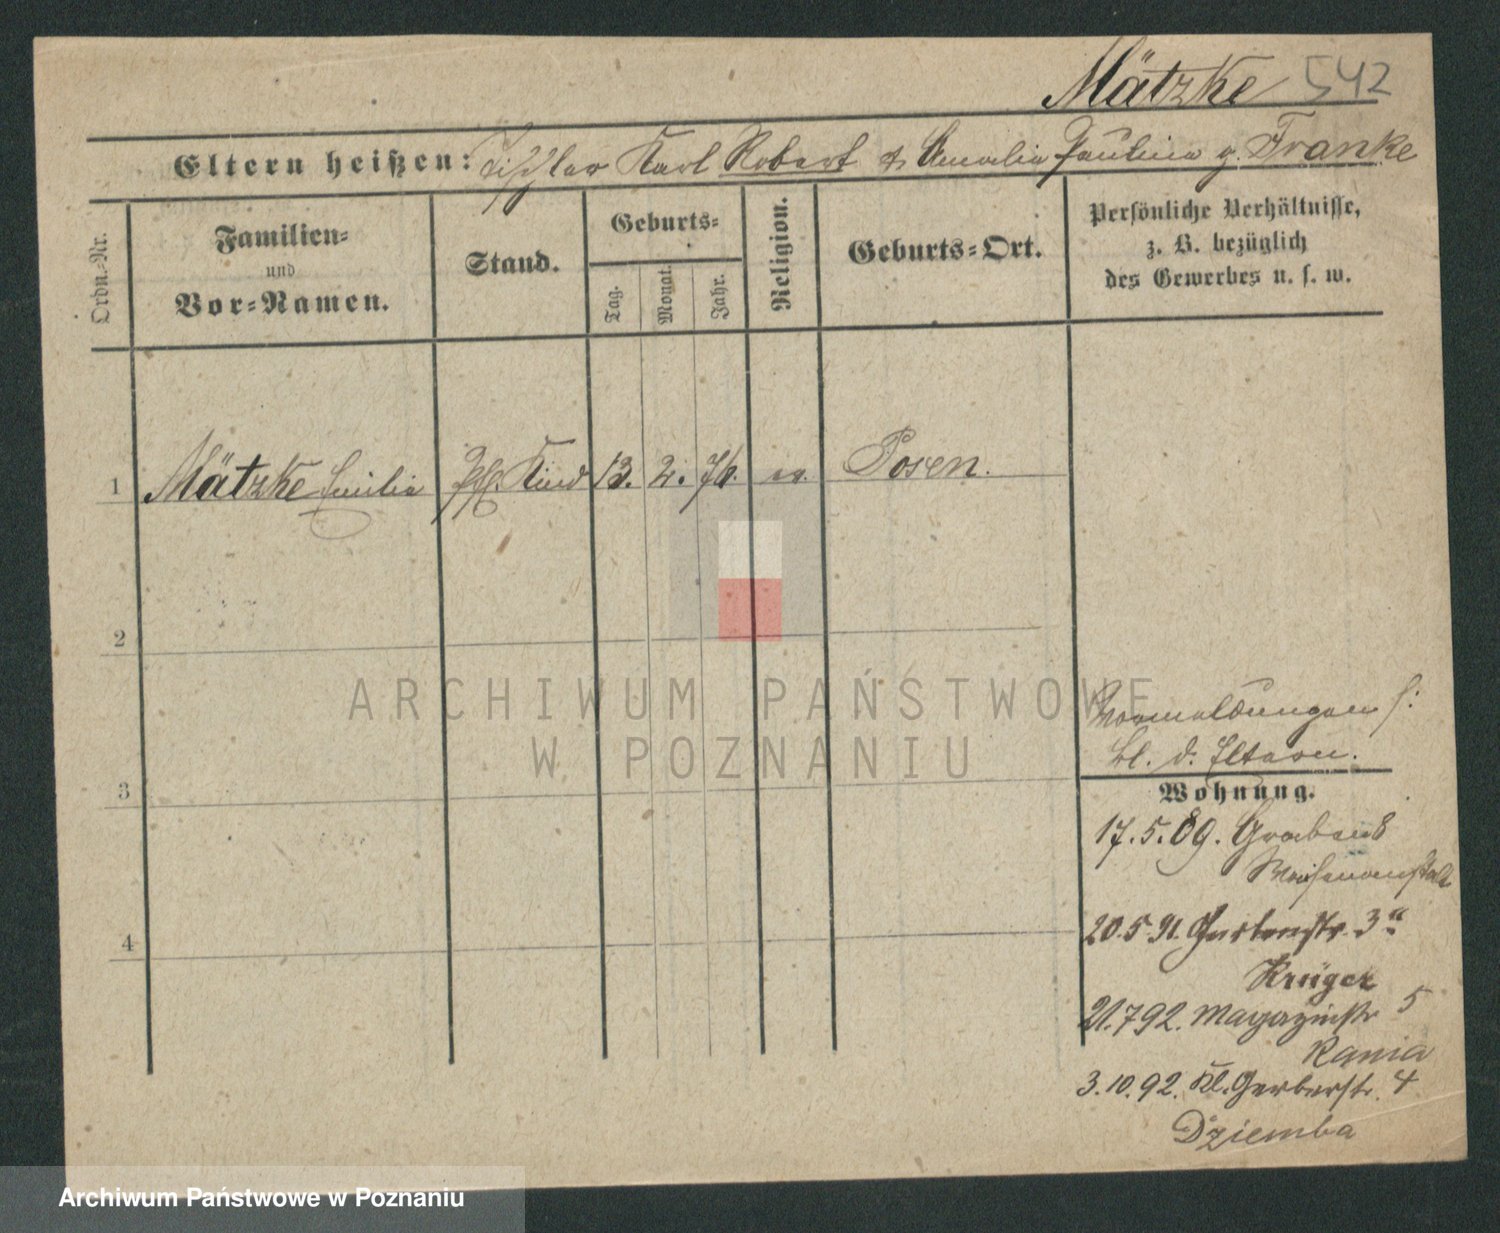 Mätzke 542
Eltern heißen: Tischler Karl Robert & Amalie Pauline g. Franke
Ordn.-Nr.
Familien-
und
Vor-Namen.
Stand.
Geburts-
Tag.
Monat.
Jahr.
Religion.
Geburts-Ort.
Persönliche Verhältnisse,
z. B. bezüglich
des Gewerbes u. s. w.
1 Mätzke Emilie Kind 13. 2. 76. ev. Posen.
2
3
4
ARCHIWUM PAŃSTWOWE
W POZNANIU
Vormeldungen s:
bl. d. Eltern.
Wohnung.
17.5.89. Graben 8
Waisenanstalt
20.5.91. Gartenstr. 3a
Krüger
21.7 92. Magazinstr 5
Rania
3.10.92. Kl. Gerberstr. 4
Dziemba
Archiwum Państwowe w Poznaniu